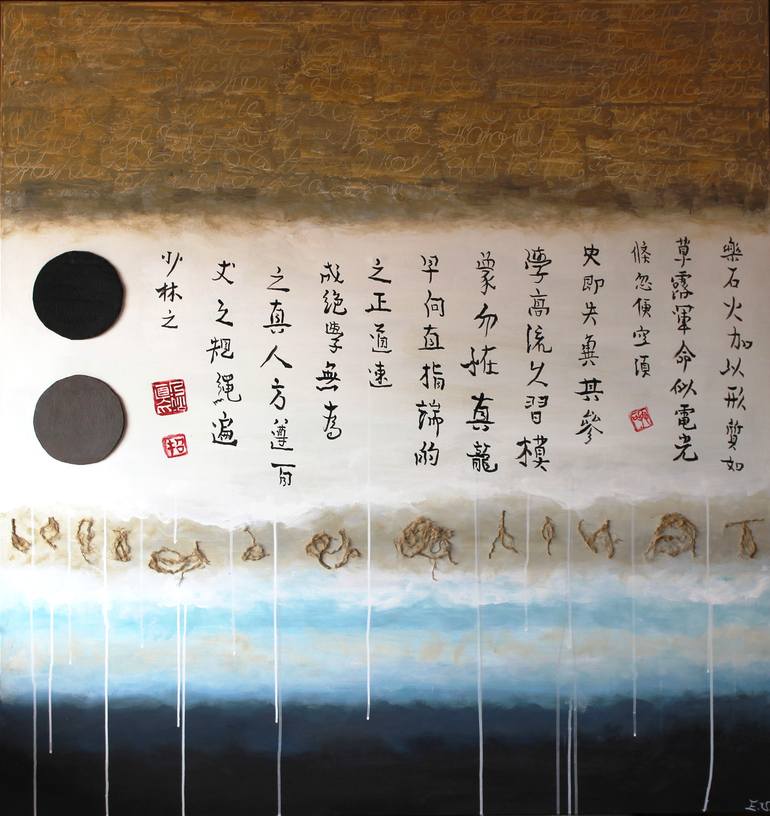 樂石火加以形質如
草露運命似電光
倏忽便空須
臾即失冀其參
學高流久習摸
象勿恠真龍
早向直指端的
之正道速
成絕學無為
之真人方遵百
丈之規繩遍
少林之